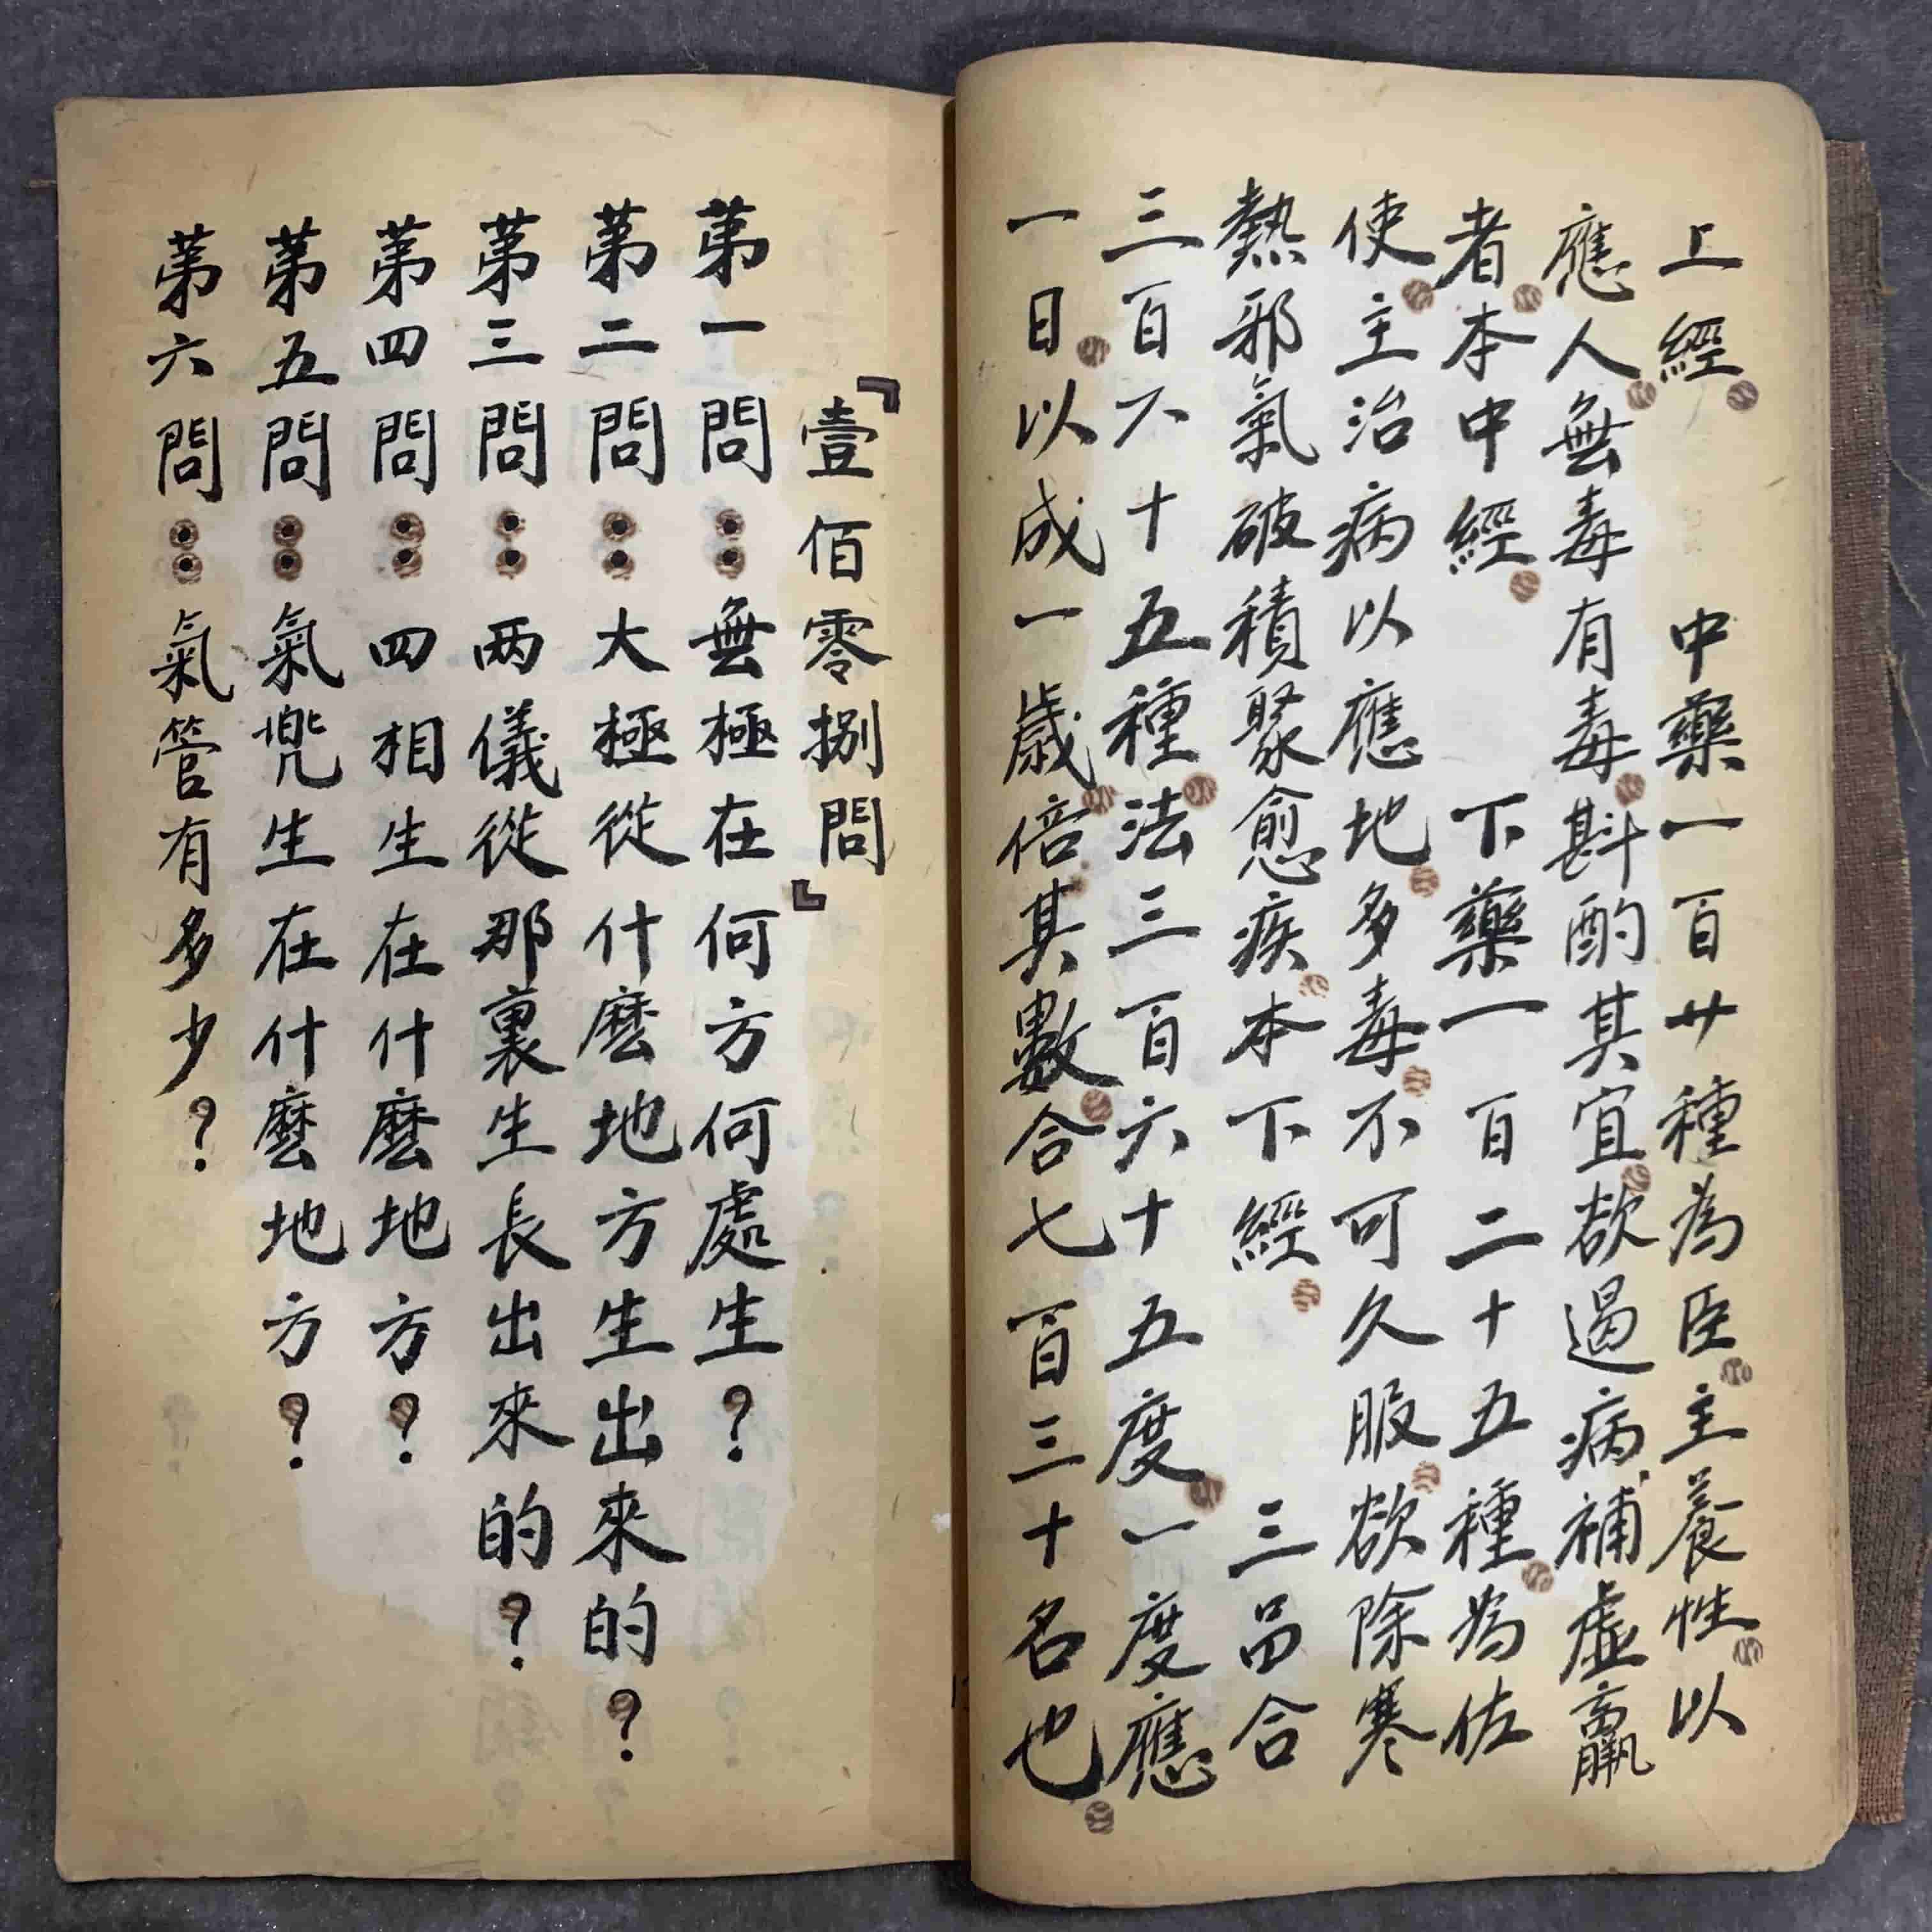 上經。 中藥一百廿種為臣。主養性。以
應人。無毒有毒。斟酌其宜。欲遏病、補虛羸
者。本中經。 下藥一百二十五種。為佐
使。主治病以應地。多毒。不可久服。欲除寒
熱邪氣破積聚愈疾。本下經。 三品合
三百六十五種。法三百六十五度。一度應
一日。以成一歲。倍其數。合七百三十名也。
『壹佰零捌問』
苐一問：無極在何方何處生？
苐二問：大極從什麽地方生出來的？
苐三問：两儀從那裏生長出來的？
苐四問：四相生在什麽地方？
苐五問：氣兜生在什麽地方？
苐六問：氣管有多少？